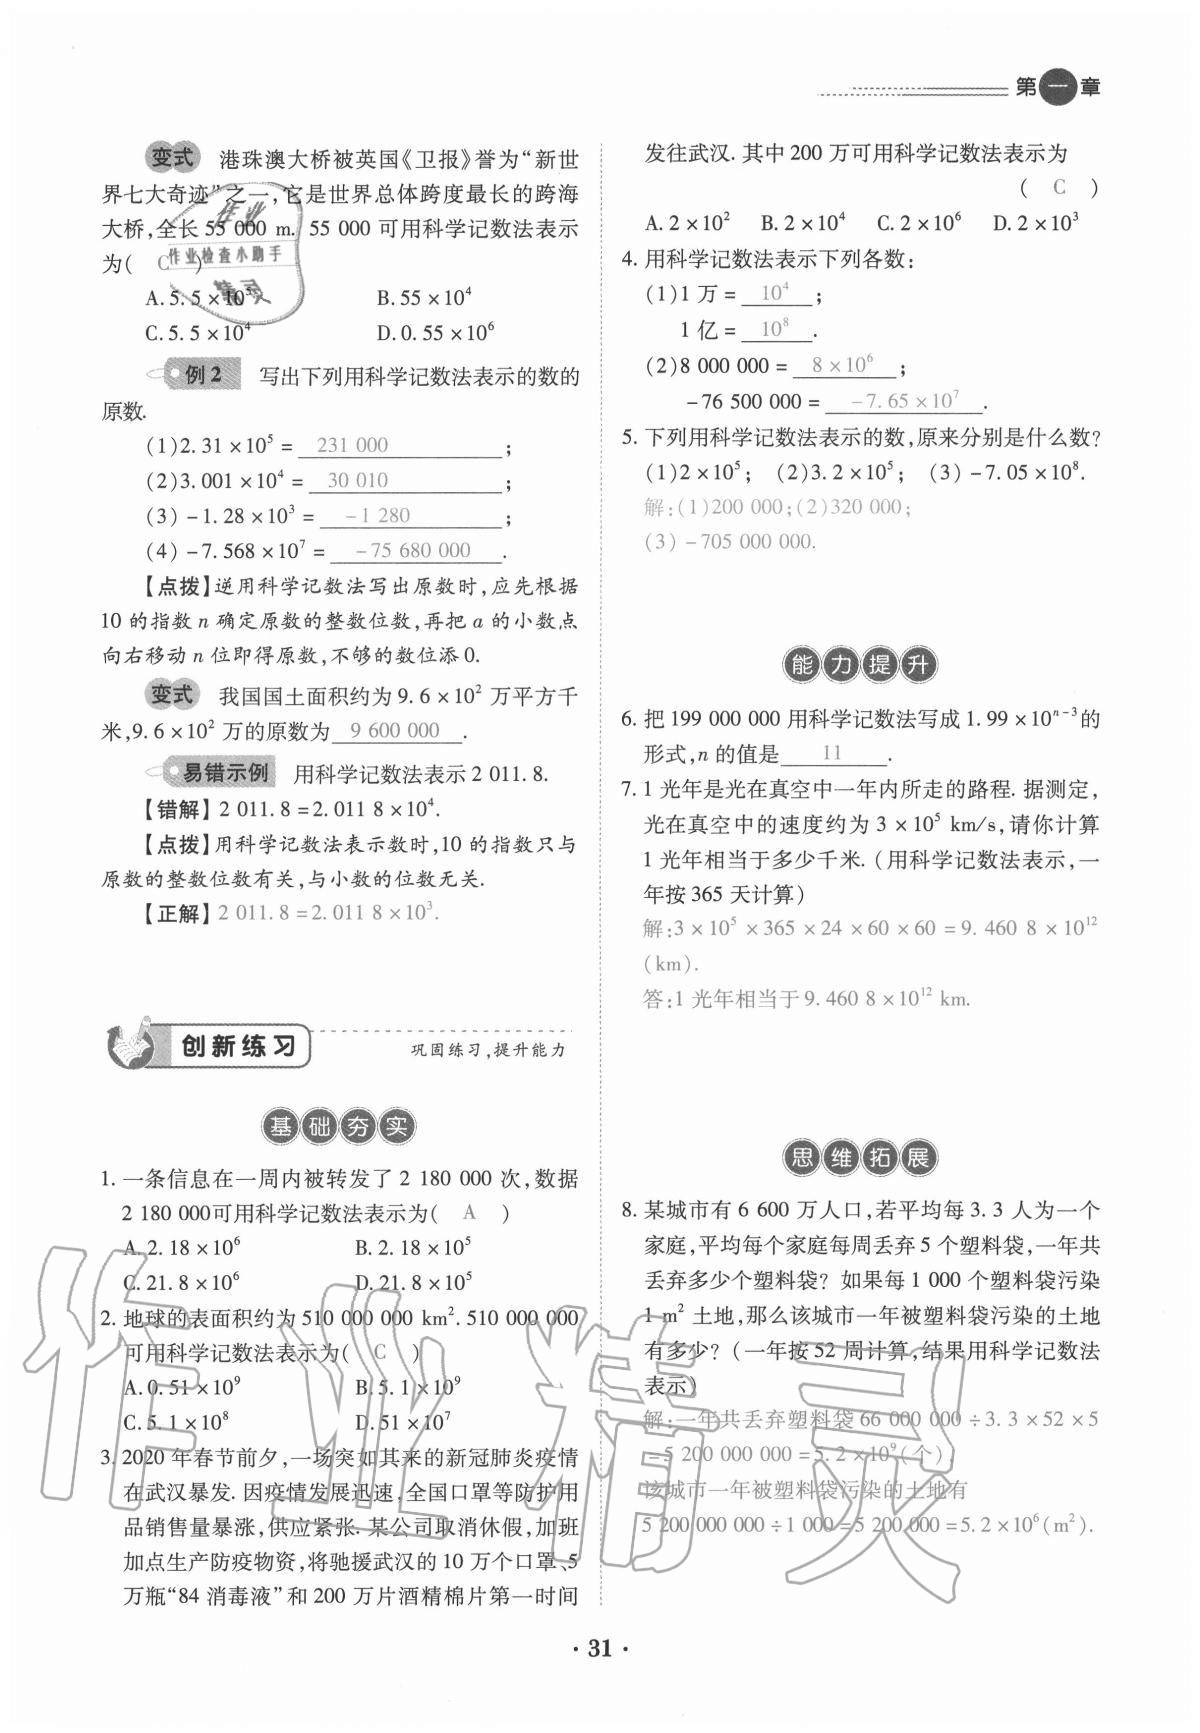 第一章
变式 港珠澳大桥被英国《卫报》誉为“新世
界七大奇迹”之一,它是世界总体跨度最长的跨海
大桥,全长 55 000 m. 55 000 可用科学记数法表示
为( C )
A. 5.5×10⁵ B. 55×10⁴
C. 5.5×10⁴ D. 0.55×10⁶
例2 写出下列用科学记数法表示的数的
原数.
(1)2.31×10⁵ = 231 000 ;
(2)3.001×10⁴ = 30 010 ;
(3) -1.28×10³ = -1 280 ;
(4) -7.568×10⁷ = -75 680 000 .
【点拨】逆用科学记数法写出原数时,应先根据
10 的指数 n 确定原数的整数位数,再把 a 的小数点
向右移动 n 位即得原数,不够的数位添 0.
变式 我国国土面积约为 9.6×10² 万平方千
米,9.6×10² 万的原数为 9 600 000 .
易错示例 用科学记数法表示 2 011.8.
【错解】2 011.8=2.011 8×10⁴.
【点拨】用科学记数法表示数时,10 的指数只与
原数的整数位数有关,与小数的位数无关.
【正解】2 011.8=2.011 8×10³.
创新练习 巩固练习,提升能力
基础夯实
1. 一条信息在一周内被转发了 2 180 000 次,数据
2 180 000可用科学记数法表示为( A )
A. 2.18×10⁶ B. 2.18×10⁵
C. 21.8×10⁶ D. 21.8×10⁵
2. 地球的表面积约为 510 000 000 km². 510 000 000
可用科学记数法表示为( C )
A. 0.51×10⁹ B. 5.1×10⁹
C. 5.1×10⁸ D. 51×10⁷
3. 2020 年春节前夕,一场突如其来的新冠肺炎疫情
在武汉暴发. 因疫情发展迅速,全国口罩等防护用
品销售量暴涨,供应紧张. 某公司取消休假,加班
加点生产防疫物资,将驰援武汉的 10 万个口罩、5
万瓶“84 消毒液”和 200 万片酒精棉片第一时间
发往武汉. 其中 200 万可用科学记数法表示为
( C )
A. 2×10² B. 2×10⁴ C. 2×10⁶ D. 2×10³
4. 用科学记数法表示下列各数:
(1)1 万 = 10⁴ ;
1 亿 = 10⁸ .
(2)8 000 000 = 8×10⁶ ;
-76 500 000 = -7.65×10⁷ .
5. 下列用科学记数法表示的数,原来分别是什么数?
(1)2×10⁵; (2)3.2×10⁵; (3) -7.05×10⁸.
解:(1)200 000;(2)320 000;
(3) -705 000 000.
能力提升
6. 把 199 000 000 用科学记数法写成 1.99×10ⁿ⁻³的
形式,n 的值是 11 .
7. 1 光年是光在真空中一年内所走的路程. 据测定,
光在真空中的速度约为 3×10⁵ km/s,请你计算
1 光年相当于多少千米.(用科学记数法表示,一
年按 365 天计算)
解:3×10⁵×365×24×60×60=9.460 8×10¹²
(km).
答:1 光年相当于 9.460 8×10¹² km.
思维拓展
8. 某城市有 6 600 万人口,若平均每 3.3 人为一个
家庭,平均每个家庭每周丢弃 5 个塑料袋,一年共
丢弃多少个塑料袋? 如果每 1 000 个塑料袋污染
1 m² 土地,那么该城市一年被塑料袋污染的土地
有多少?(一年按 52 周计算,结果用科学记数法
表示)
解:一年共丢弃塑料袋 66 000 000÷3.3×52×5
=5 200 000 000=5.2×10⁹(个).
该城市一年被塑料袋污染的土地有
5 200 000 000÷1 000=5 200 000=5.2×10⁶(m²).
· 31 ·
作业
作业检查小助手
精灵
作业精灵